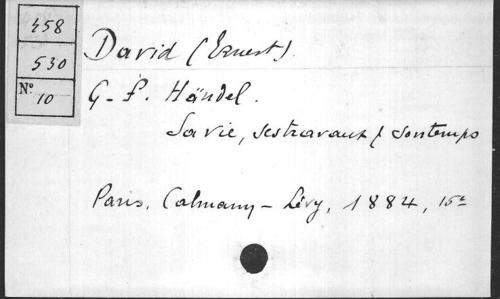 458
530
Nº 10
David (Ernest).
G-F. Händel.
Sa vie, ses travaux & son temps
Paris, Calmann-Lévy, 1884,